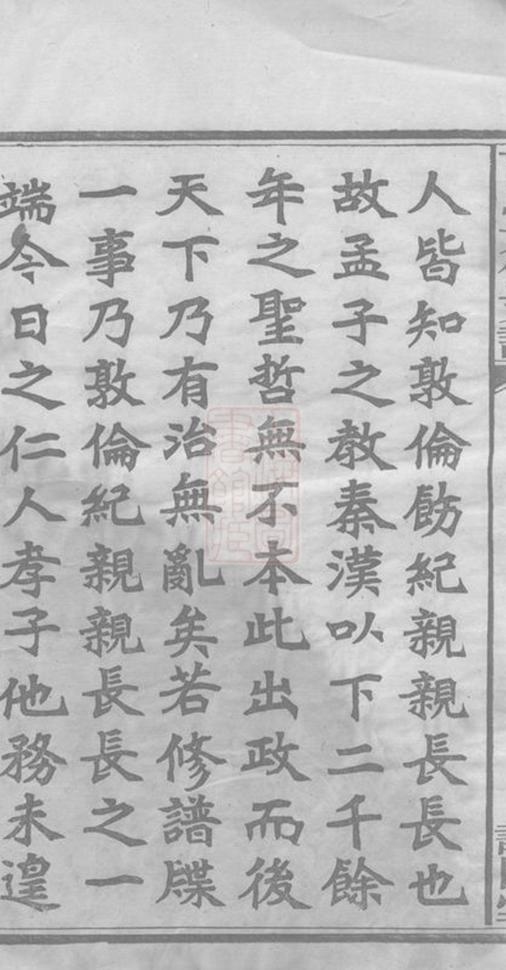 人皆知敦倫飭紀親親長長也
故孟子之教秦漢以下二千餘
年之聖哲無不本此出政而後
天下乃有治無亂矣若修譜牒
一事乃敦倫紀親親長長之一
端今日之仁人孝子他務未遑